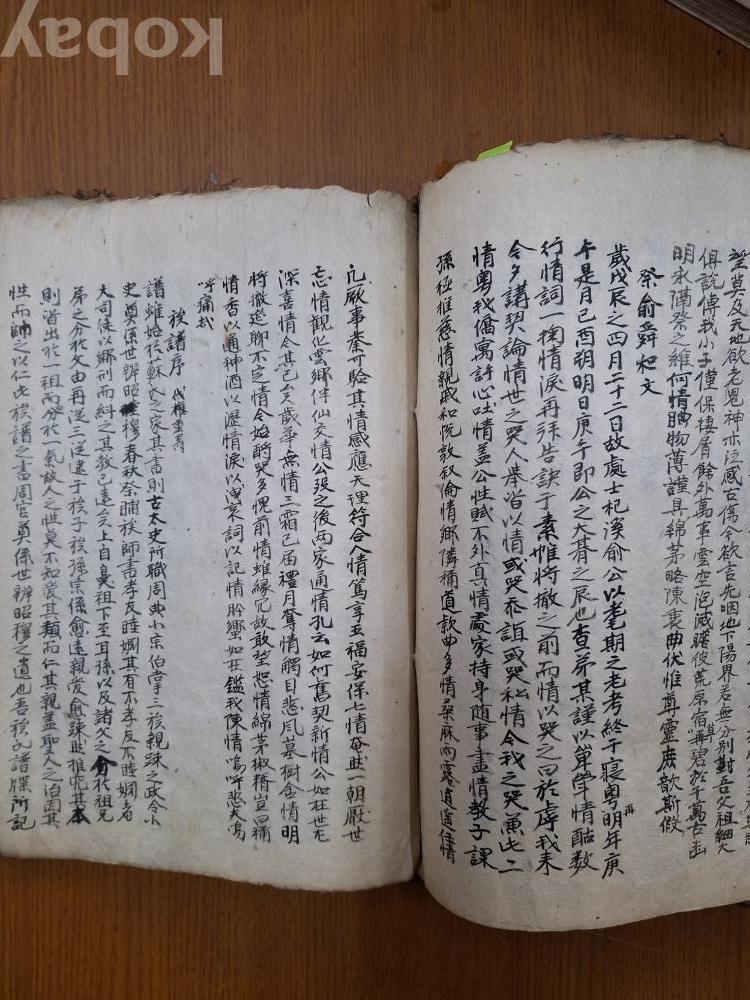 望莫及天地欲老鬼神亦泣感古傷今欲言先咽地下陽界若無分別對吾父祖細大
俱說傳我小子僅保棲屑餘外萬事雲空泡滅曙彼荒原宿草再碧於千萬古幽
明永隔祭之維何情物薄謹具綿茅略陳衷曲伏惟尊靈庶歆斯假
祭俞舜和文
歲戊辰之四月二十二日故處士杞溪俞公以耄期之老考終于寢粤明年再庚
午是月己酉朔明日庚午即公之大朞之辰也查弟某謹以單情酤數
行情詞一掬情淚再拜告訣于素帷將撤之前而情以哭之曰於虖我來
今夕講契論情世之哭人舉皆以情或哭忝誼或哭私情今我之哭兼此二
情粤我僑寓許心吐情蓋公性賦不外真情處家持身隨事盡情教子課
孫極推慈情親戚和悅敦叙倫情鄉隣稱道款曲多情桑麻雨露逍遙任情
凡厥事奉可驗其情感應天理符合人情篤享五福安保七情奄此一朝厭世
忘情觀化雲鄉伴仙交情公歿之後兩家通情孔云如何舊契新情公如在世尤
深喜情今其已矣歲華無情三霜已届禮月奪情觸目悲風墓樹含情明
將撤筵聊不定情今始酹哭多愧前情雖緣冗故敢望恕情綿茅椒糈豈曰稱
情香以通神酒以瀝情淚以洩哀詞以記情肹蠁如在鑑我陳情嗚呼悲夫嗚
呼痛哉
族譜序 代權重壽
譜雖始於蘇氏之家其書則古太史所職周典小宗伯掌三族親踈之政令小
史奠係世辨昭穆春秋祭酺族師書孝友睦婣其有不孝友不睦婣者
大司徒以鄉刑而糾之其教已遠矣上自鼻祖下至耳孫以及諸父之分於祖兄
弟之分於父由再從三從逮于族子族孫宗係愈遠親愛愈踈此推究其本
則皆出於一祖而分於一氣故人之性莫不知愛其類而仁其親蓋聖人之治因其
性而帥之以仁此族譜之書周官奠係世辨昭穆之遺也吾族氏譜牒所記
kobay